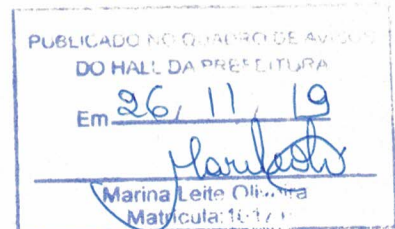 PUBLICADO NO QUADRO DE AVISOS
DO HALL DA PREFEITURA
Em 26, 11, 19
Marina Leite Oliveira
Matrícula: